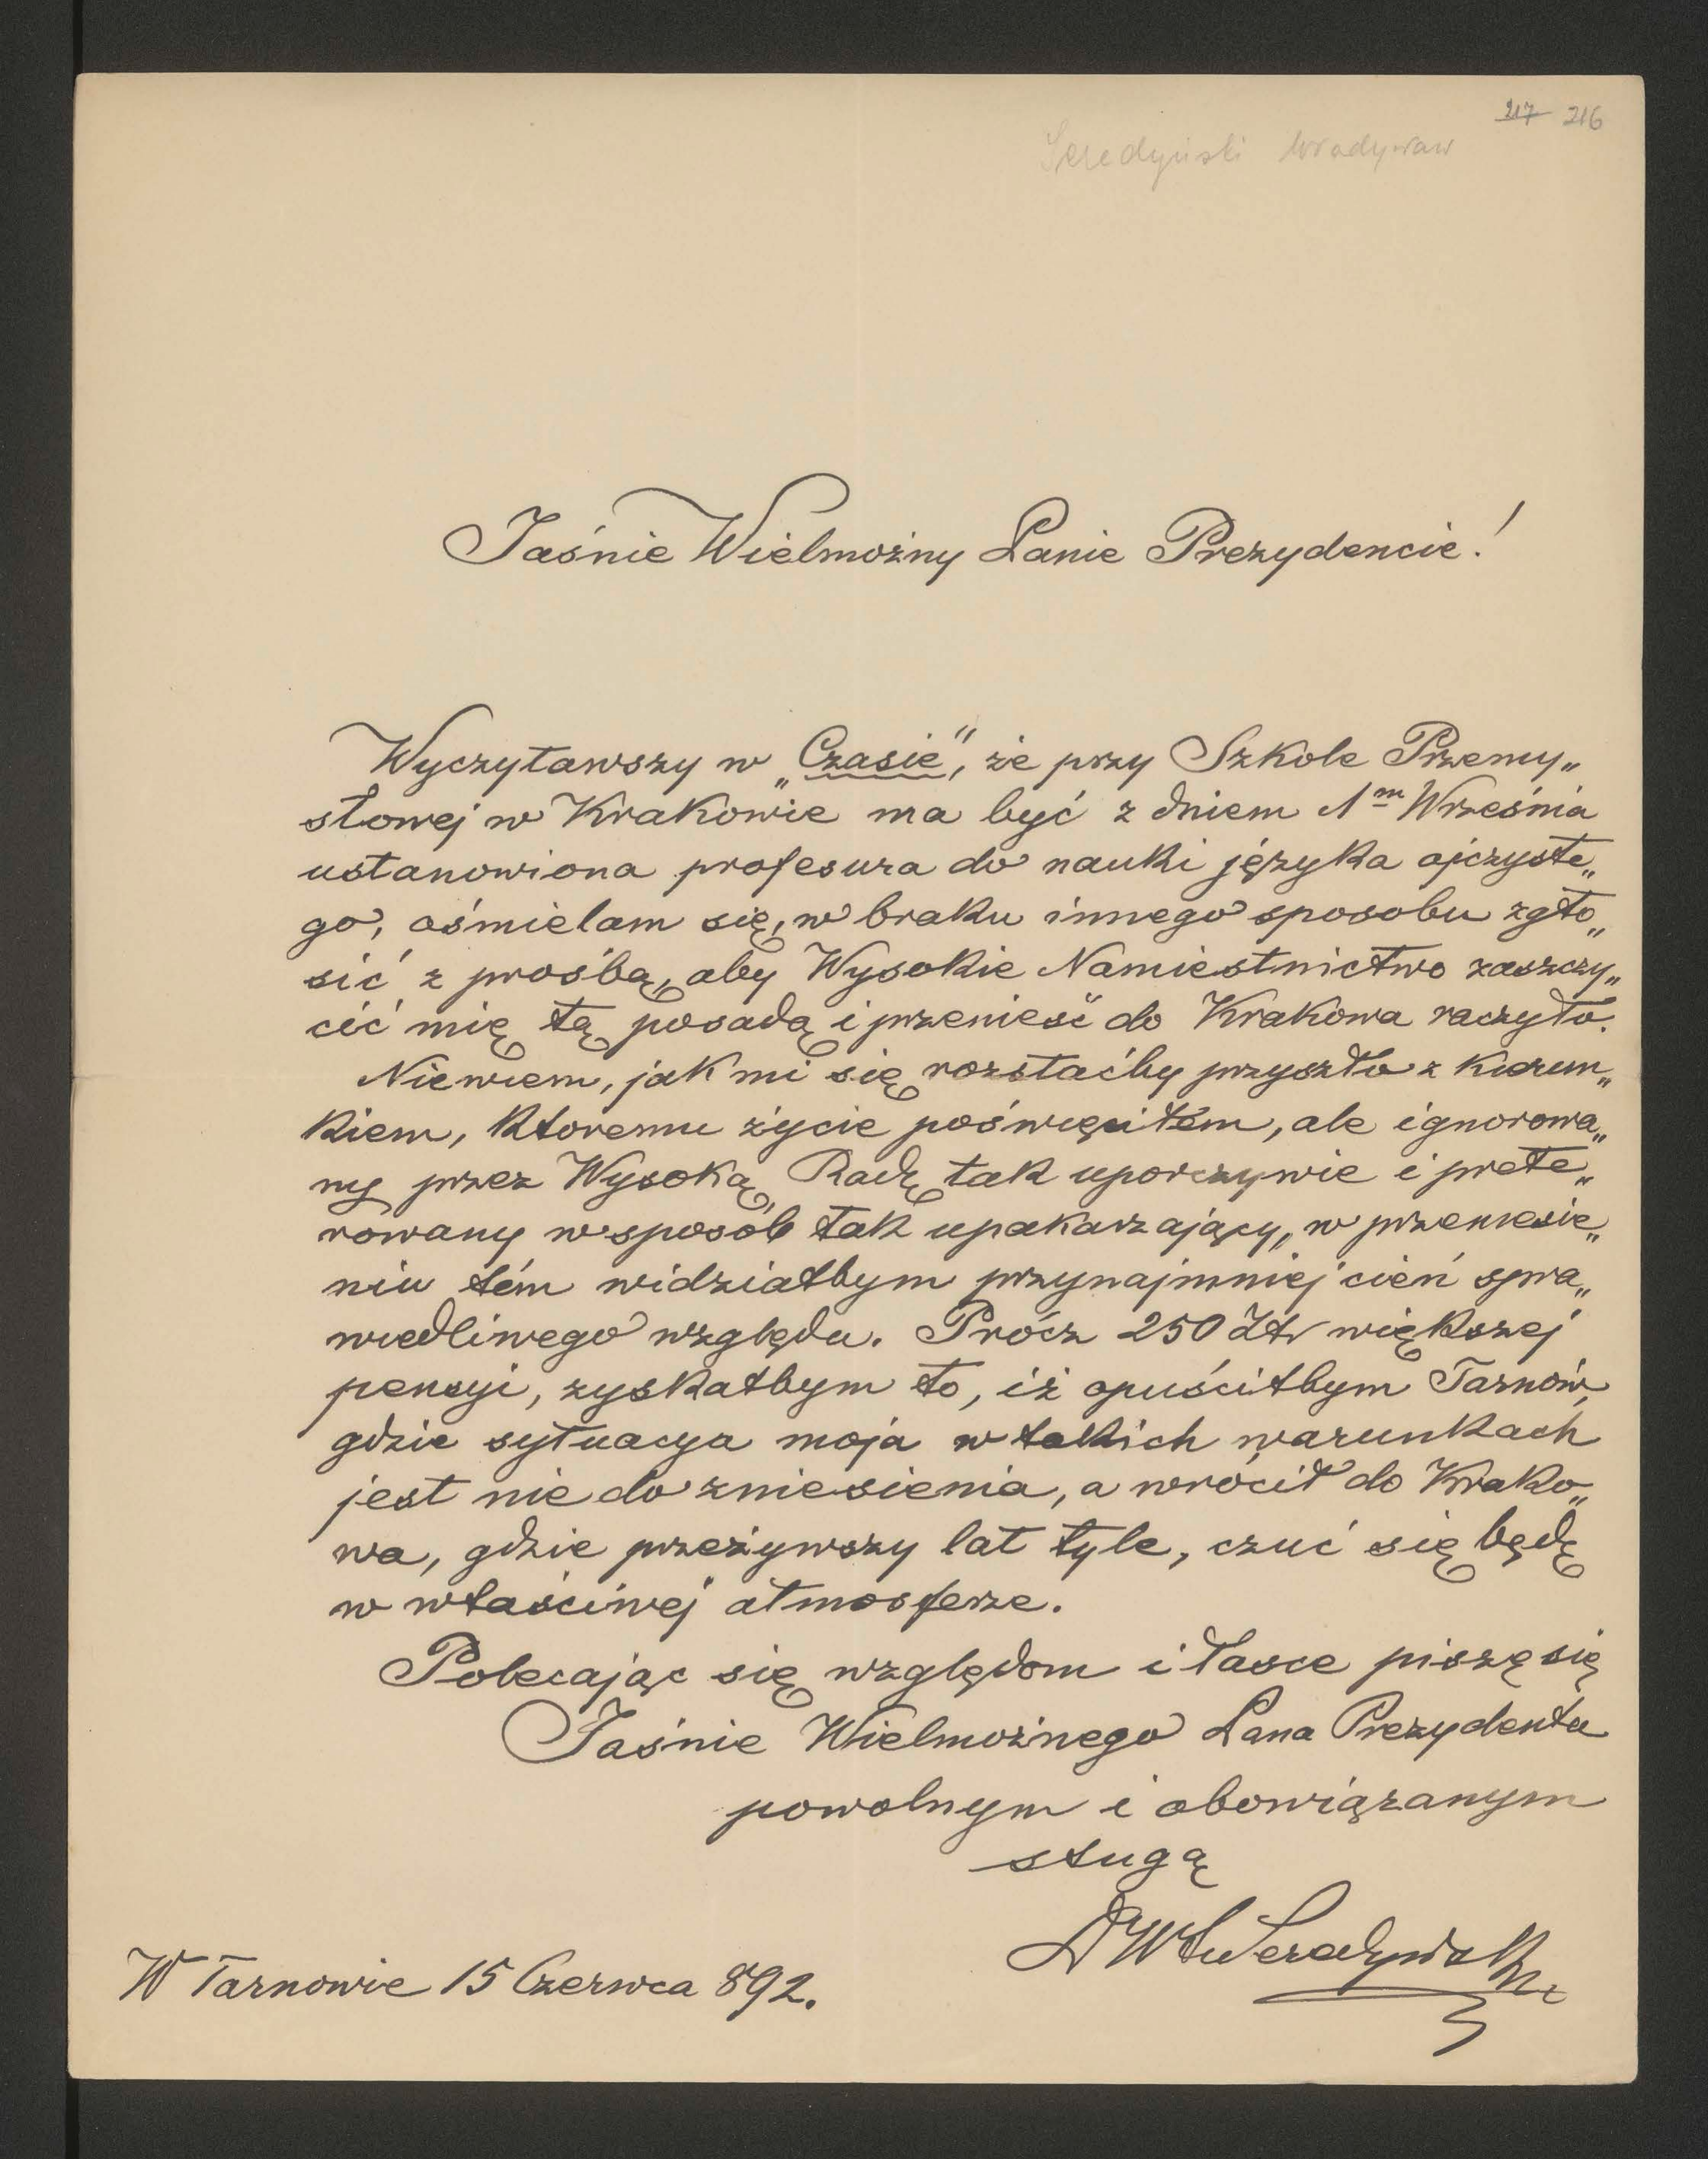 217 216
Seredyński Władysław
Jaśnie Wielmożny Panie Prezydencie!
Wyczytawszy w „Czasie", że przy Szkole Przemy„
słowej w Krakowie ma być z dniem 1m Września
ustanowiona profesura do nauki języka ojczyste„
go, ośmielam się, w braku innego sposobu zgło„
sić z prośbą, aby Wysokie Namiestnictwo zaszczy„
cić mię tą posadą i przenieść do Krakowa raczyło.
Niewiem, jak mi się rozstaćby przyszło z kierun„
kiem, ktoremu życie poświęciłem, ale ignorowa„
ny przez Wysoką Radę tak uporczywie i prete„
rowany w sposób tak upakarzający, w przeniesie„
niu tém widziałbym przynajmniej cień spra„
wiedliwego względu. Prócz 250 Złr większej
pensyi, zyskałbym to, iż opuściłbym Tarnów,
gdzie sytuacya moja w takich warunkach
jest nie do zniesienia, a wrócił do Krako„
wa, gdzie przeżywszy lat tyle, czuć się będę
w właściwej atmosferze.
Polecając się względom i łasce piszę się
Jaśnie Wielmożnego Pana Prezydenta
powolnym i obowiązanym
sługą
Dr Wł Seredyński
W Tarnowie 15 Czerwca 892.